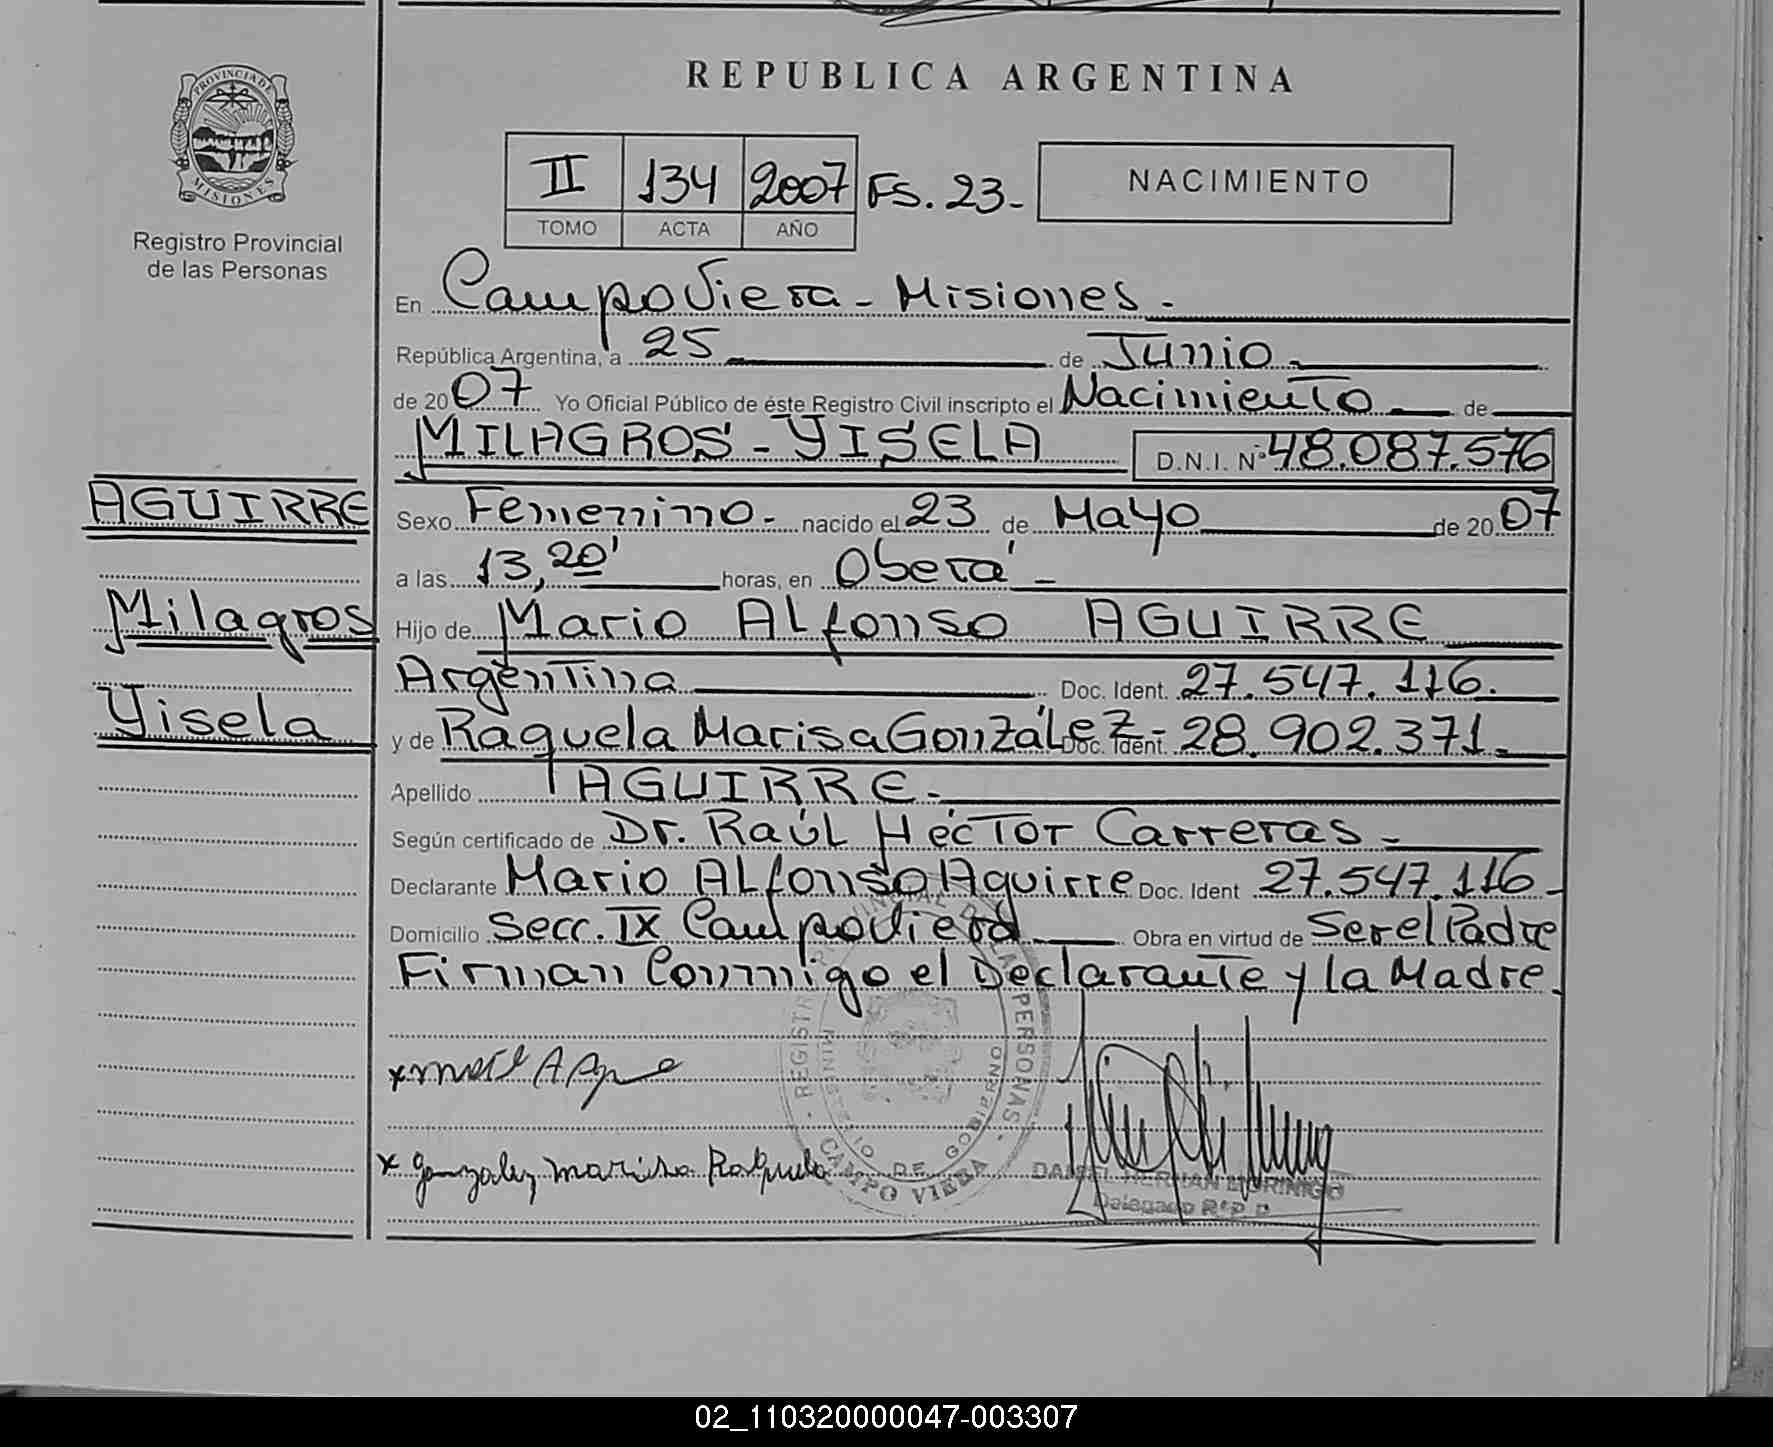 REPUBLICA ARGENTINA
PROVINCIA DE
MISIONES
Registro Provincial
de las Personas
II 134 2007 FS. 23-
TOMO ACTA AÑO
NACIMIENTO
En Campo Viera - Misiones -
República Argentina, a 25 de Junio
de 2007 Yo Oficial Público de éste Registro Civil inscripto el Nacimiento de
MILAGROS - YISELA D.N.I. Nº 48.087.576
AGUIRRE
Milagros
Yisela
Sexo Femenino - nacido el 23 de Mayo de 2007
a las 13,20' horas, en Oberá -
Hijo de Mario Alfonso AGUIRRE
Argentina Doc. Ident. 27.547.116.
y de Raquela Marisa González - Doc. Ident. 28.902.371.
Apellido AGUIRRE -
Según certificado de Dr. Raúl Héctor Carreras -
Declarante Mario Alfonso Aguirre Doc. Ident 27.547.116 -
Domicilio Secc. IX Campo Viera Obra en virtud de Ser el Padre
Firman Conmigo el Declarante y la Madre.
REGISTRO PROVINCIAL DE LAS PERSONAS
MINISTERIO DE GOBIERNO
CAMPO VIERA
x gonzalez marisa Raquela
DANIEL HERNAN MORINIGO
Delegado R.P.P.
02_110320000047-003307